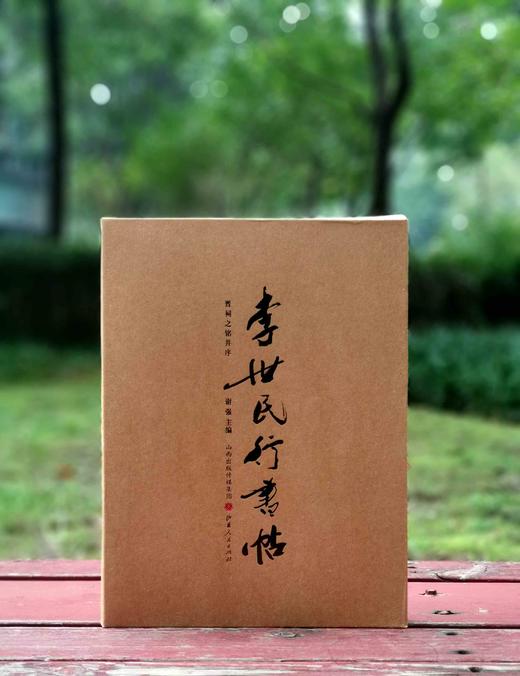 李世民行書帖
晋祠之铭并序
谢强 主编
山西出版传媒集团
山西人民出版社